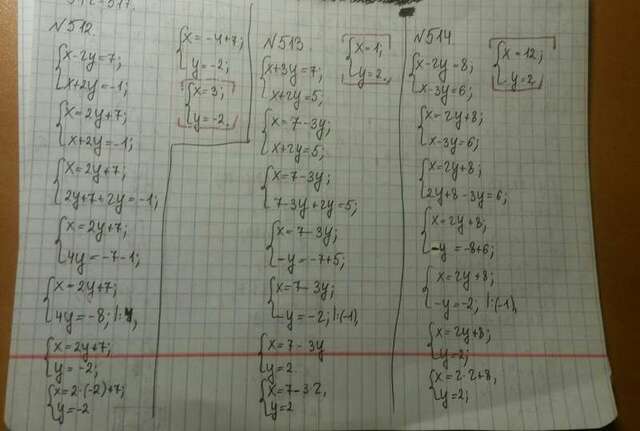 №512.
{x-2y=7;
x+2y=-1;
{x=2y+7;
x+2y=-1;
{x=2y+7;
2y+7+2y=-1;
{x=2y+7;
4y=-7-1;
{x=2y+7;
4y=-8; |:4,
{x=2y+7;
y=-2;
{x=2·(-2)+7;
y=-2
{x=-4+7;
y=-2;
{x=3;
y=-2
№513.
{x+3y=7;
x+2y=5;
{x=7-3y;
x+2y=5;
{x=7-3y;
7-3y+2y=5;
{x=7-3y;
-y=-7+5;
{x=7-3y;
-y=-2, |:(-1),
{x=7-3y
y=2
{x=7-3·2,
y=2
{x=1;
y=2.
№514.
{x-2y=8;
x-3y=6;
{x=2y+8;
x-3y=6;
{x=2y+8;
2y+8-3y=6;
{x=2y+8;
-y=-8+6;
{x=2y+8;
-y=-2, |:(-1),
{x=2y+8;
y=2;
{x=2·2+8,
y=2;
{x=12;
y=2